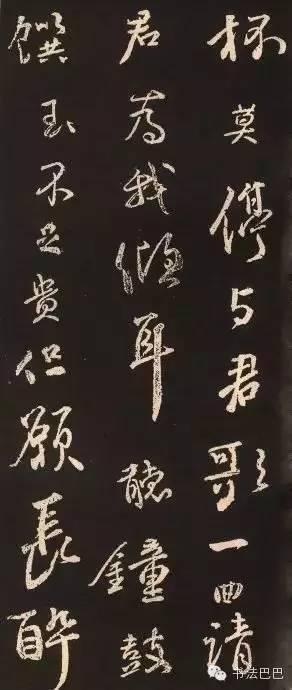 杯莫停与君歌一曲請
君為我傾耳聽鐘鼓
饌玉不足貴但願長醉
书法巴巴